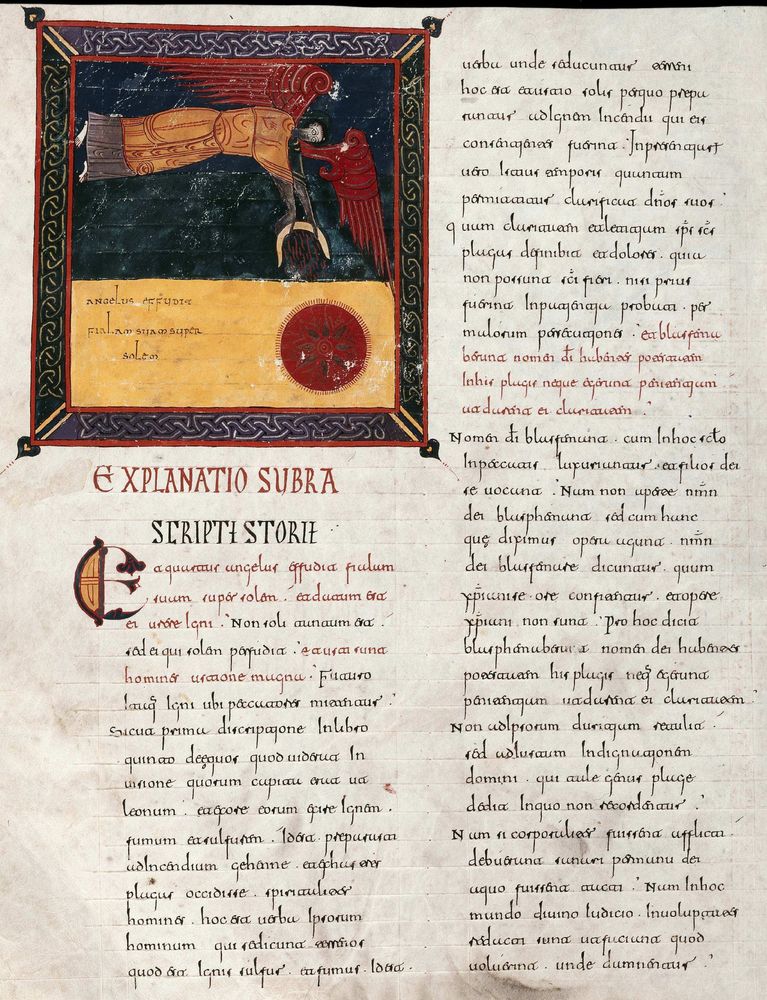 ANGELUS EFFUDIT
FIALAM SUAM SUPER
SOLEM
EXPLANATIO SUBRA
SCRIPTE STORIE
Et quartus angelus effudit fialam
suam super solem . et datum est
ei urere igni . Non soli datum est .
sed ei qui solem perfudit . Et usti sunt
homines ustione magna . Futuro
itaq; igni ubi peccatores mittantur .
Sicut prima discriptione in libro
quinto de equos quod viderat in
visione quorum capita erat ut
leonum . et ex ore eorum exire ignem .
fumum et sulfurem . Idest preparari
ad incendium gehenne . et ex his tres
plagas occidisse . spiritaliter
homines . hoc est verba ipsorum
hominum qui seducunt
quod est ignis sulfur . et fumus . Idest .
verba unde seducuntur
hoc est ustio solis per quo prepa
rantur ad ignem incendii qui eis
consentientes fuerint . In presenti aut
vero letus temporis quantum
permittatur clarificat dños suos .
quum claritatem et letitiam sps scs
plagas definibit et dolores . quia
non possunt sci fieri . nisi prius
fuerint in patientia probati . per
multorum persecutiones . et blasfema
berunt nomen di habentes potestatem
in his plagis neque egerunt penitentium
ut darent ei claritatem .
Nomen di blasfemant . cum in hoc sclo
in peccatis luxuriantur . et filios dei
se vocant . Num non aperte nmn
dei blasphemant sed cum hunc
quę diximus opera agunt . nmn
dei blasfemare dicuntur . quum
xpianise . ore confitentur . et opere
xpiani non sunt . Pro hoc dicit
blasphemaberunt nomen dei habentes
potestatem his plagis neq; egerunt
penitentium ut darent ei claritatem .
Non ad ipsorum duritium retulit .
sed ad iustam indignationem
domini . qui tale genus plage
dedit in quo non recordentur .
Num si corporaliter fuissent afflicti .
debuerunt sanari per manu dei
a quo fuissent tacti . Num in hoc
mundo divino iudicio . involuptates
seducti sunt ut faciant quod
voluerint . unde damnentur .